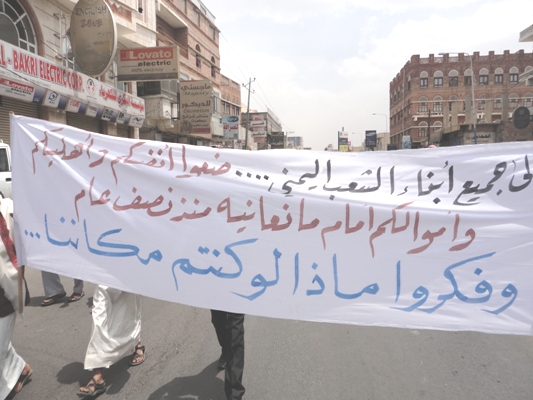 إلى جميع أبناء الشعب اليمني .... ضعوا أنفسكم وأهليكم
وأموالكم امام ما نعانيه منذ نصف عام
وفكروا ماذا لو كنتم مكاننا...
L - BAKRI ELECTRIC CORP
Lovato
electric
ماجستي
للديكور